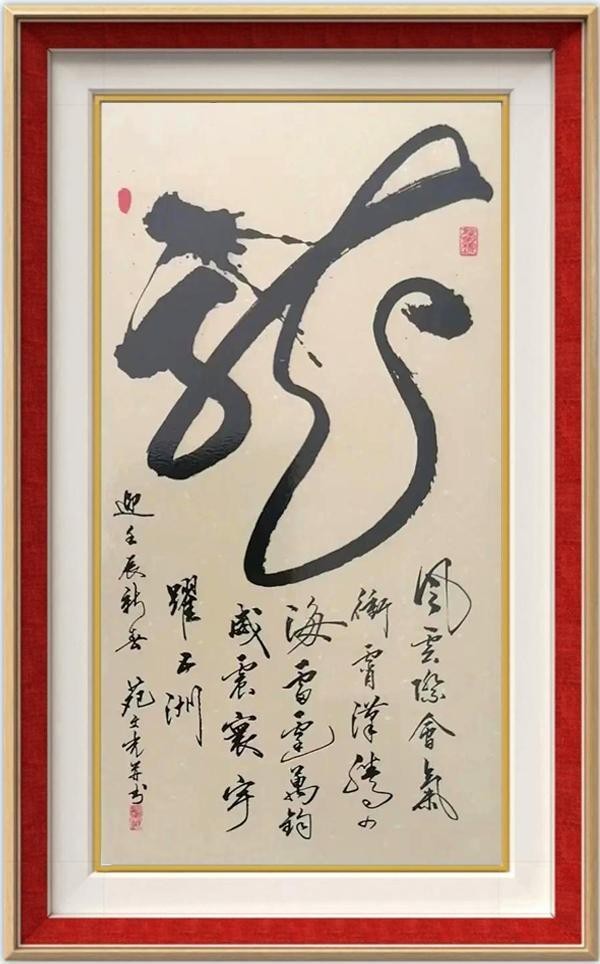 龍
風雲際會氣
衝霄漢騰四
海雷霆萬鈞
威震寰宇
躍五洲
迎壬辰新春 苑文光并书